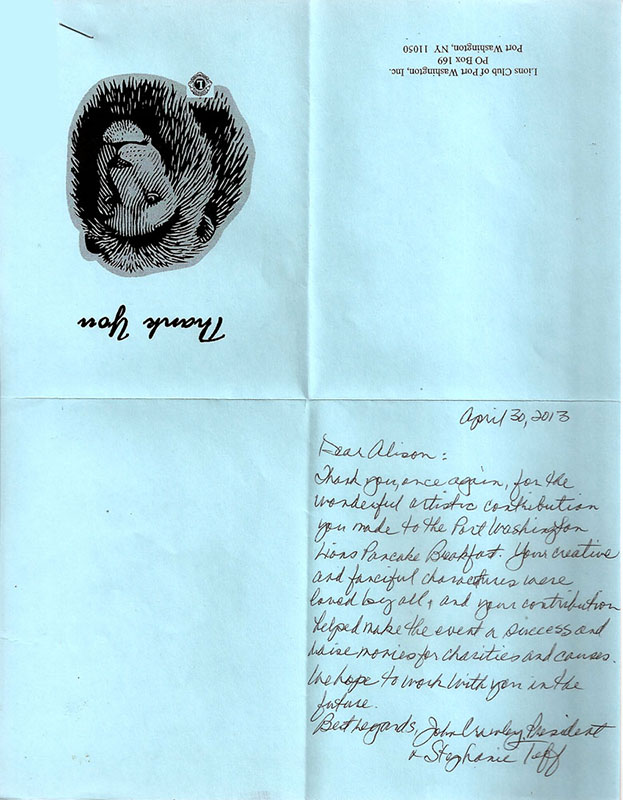 Thank You
Lions Club of Port Washington, Inc.
PO Box 169
Port Washington, NY 11050
April 30, 2013
Dear Alison:
Thank you, once again, for the
wonderful artistic contribution
you made to the Port Washington
Lions Pancake Breakfast. Your creative
and fanciful charactures were
loved by all, and your contribution
helped make the event a success and
raise monies for charities and causes.
We hope to work with you in the
future.
Best regards, John President
& Stephanie Teff